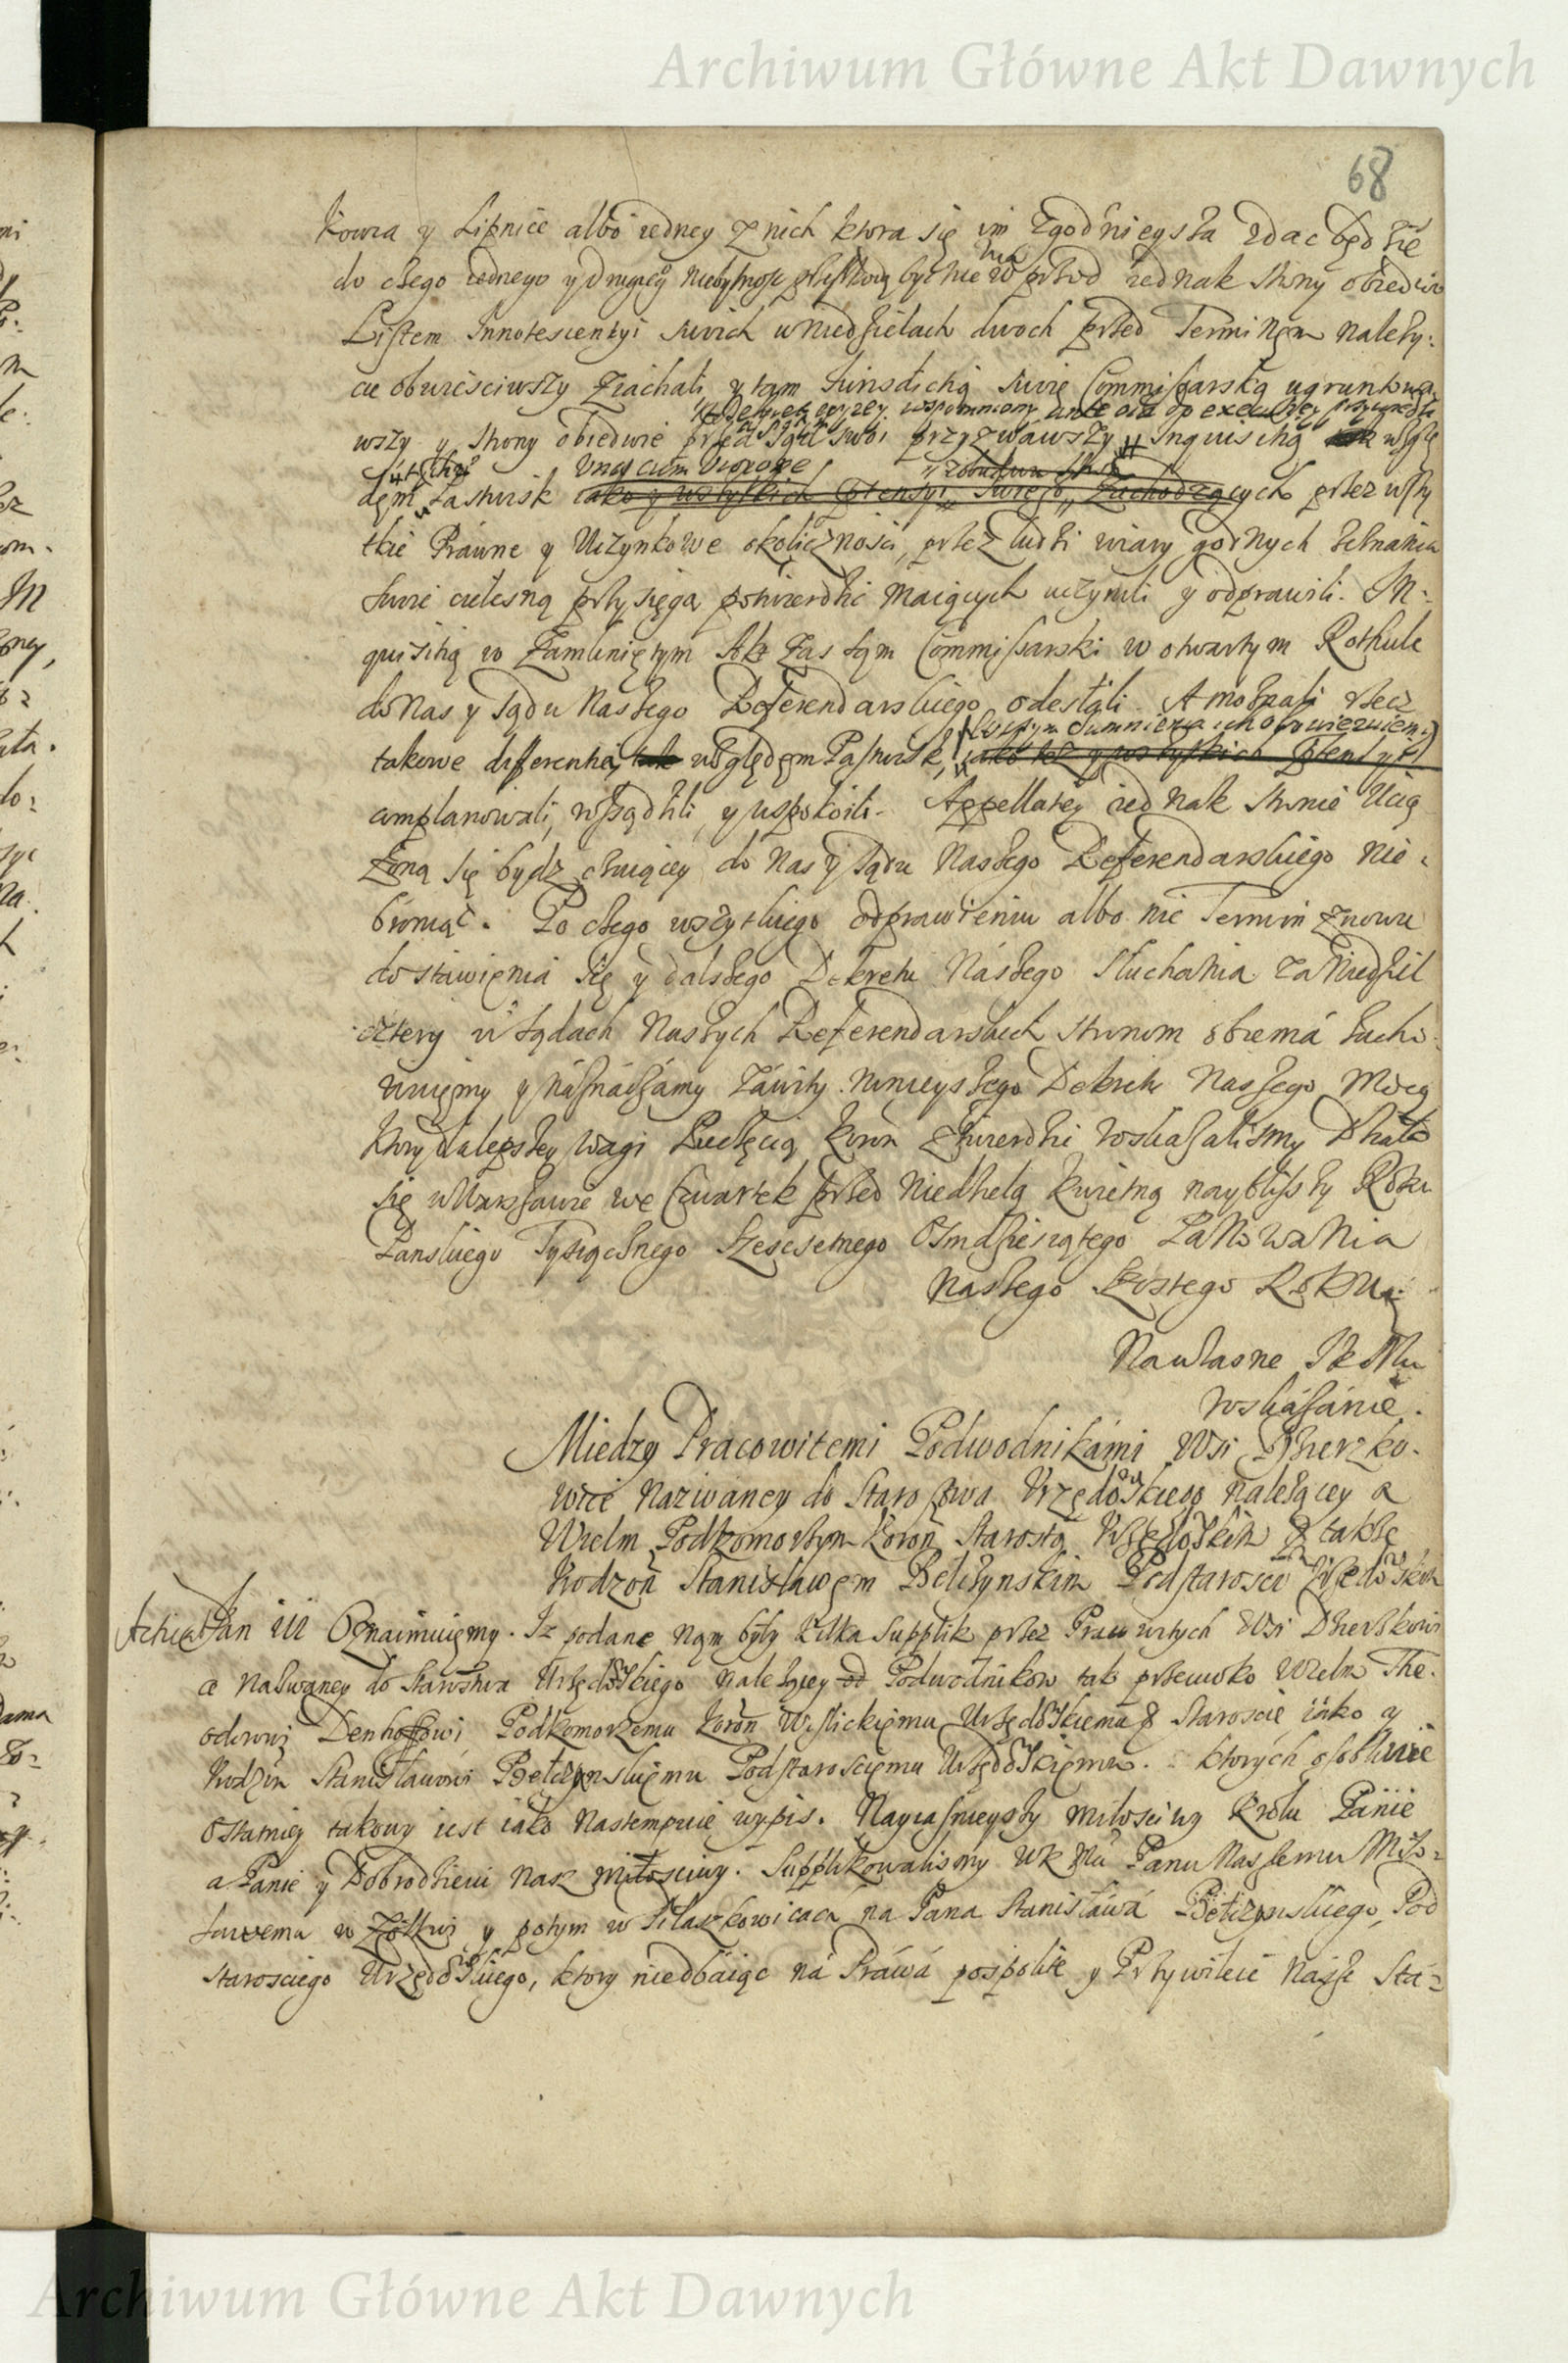 Archiwum Główne Akt Dawnych
68
y Lipnice albo iedney z nich ktora się im zgodnieysza zdac będzie
do czego iednego y drugiego niebytnosc przeszkodą byc nie ma wprzod iednak strony obiedwie
Listem Innotescentyi swich w niedzielach dwoch przed Terminem należy:
cie obwiesciwszy ziachali y tam Iurisdictią swoię Commissarską ugruntowa
wszy y strony obiedwie przed Sąd swoi przyzwawszy Inquisitią wzglę
dem Pastwisk iako y wszystkich przez wszy
tkie Prawne y Uczynkowe okolicznosci, przez ludzi wiary godnych zeznania
swoie cielesną przysięgą potwierdzic maiących uczynili y odprawili. In:
quisitią w zamknietym Akt zas tym Commissarski w otwartym Rothule
do Nas y Sądu Naszego Referendarskiego odesłali. A rzecz
takowe differentie, tak względem Pastwisk, iako też y wszystkich
complanowali, rosądzili, y uspokoili. Appellatiey iednak stronie Ucią
żoną się bydz czuiącey do Nas y Sądu Naszego Referendarskiego nie
broniąc. Po czego wszytkiego odprawieniu albo nie Termin znowu
do stawienia się y dalszego Dekretu Naszego słuchania za Niedziel
cztery w Sądach Naszych Referendarskich stronom obiema zacho:
wuięmy y náznáczámy záwity ninieyszego Dekretu Naszego Mocą
Ktory dla lepszey wagi Pieczęcią Koron ztwierdzić roskazalismy Działo
się w Warszawie we Czwartek przed Niedzielą Kwietną naybliższy Roku
Panskiego Tysiącznego Szescsetnego Osmdziesiątego PaNowaNia
Naszego Szostego RokU
Na własne IKMci
roskázánie.
Miedzy Pracowitemi Podwodnikámi Wsi Dzierzko-
wice Nazwaney do Starostwa Vrzędowskiego należącey a
Wielm Podkomorzym Koron Starostą Vrzędowskim a także
Vrodzon Stanisławem Bełczynskim Podstarosci Vrzędowskim
Jan III Oznaimuięmy. Iz podane nąm były kilka Supplik przez Pracowitych Wsi Dzierzkowi
ce Nazwaney do Starostwa Urzędowskiego należącey od Podwodnikow tak przeciwko Wielm The:
odorowi Denhoffowi Podkomorzemu Koron Wislickiemu Urzędowskiemu & Staroscie iáko y
Vrodzon Stanisławowi Bełczynskięmu Podstarosciemu Urzędowskięmu. ktorych osobliwie
Ostatniey takowy iest iako nastempuie wypis. Nayiasnieyszy Miłosciwy Krolu Panie
a Panie y Dobrodzieiu Nasz miłosciwy. Supplikowalismy WKMci Panu Naszemu Miło-
sciwemu w Zołkwi y potym w Pilaszkowicach na Pana Stanisławá Bełczynskiego, Pod
starosciego Urzędowskiego, ktory niedbáiąc ná Práwá pospolite y Przywileie Nasze Stá-
Archiwum Główne Akt Dawnych